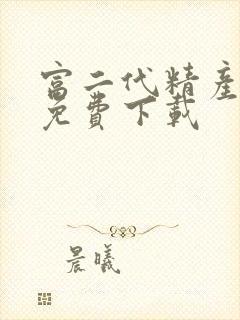 富二代精产
免費下載
晨曦